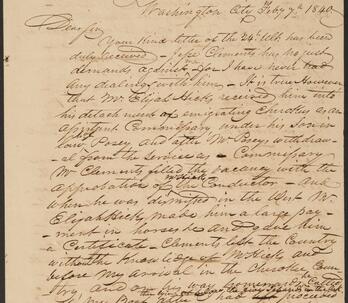 Washington City Feby 7th 1840
Dear Sir
Your kind letter of the 24 Ult. has been
duly received - Jesse Clements has no just
demands against me for I have never had
any dealings with him - It is true however
that Mr Elijah Hicks received him into
his detachment of emigrating Cherokees as an
assistant Commissary under his Son in
law Posey and after Mr Poseys withdraw
-al from the service as Commissary
Mr Clements filled the vacancy with the
approbation of the Conductor - and
when he was dismissed in the West Mr
Elijah Hicks made him a large pay
-ment in horses &c and gave him
a Certificate - Clements left the Country
without the knowledge of Mr Hicks and
before my arrival in the Cherokee Coun
try and on my
had received